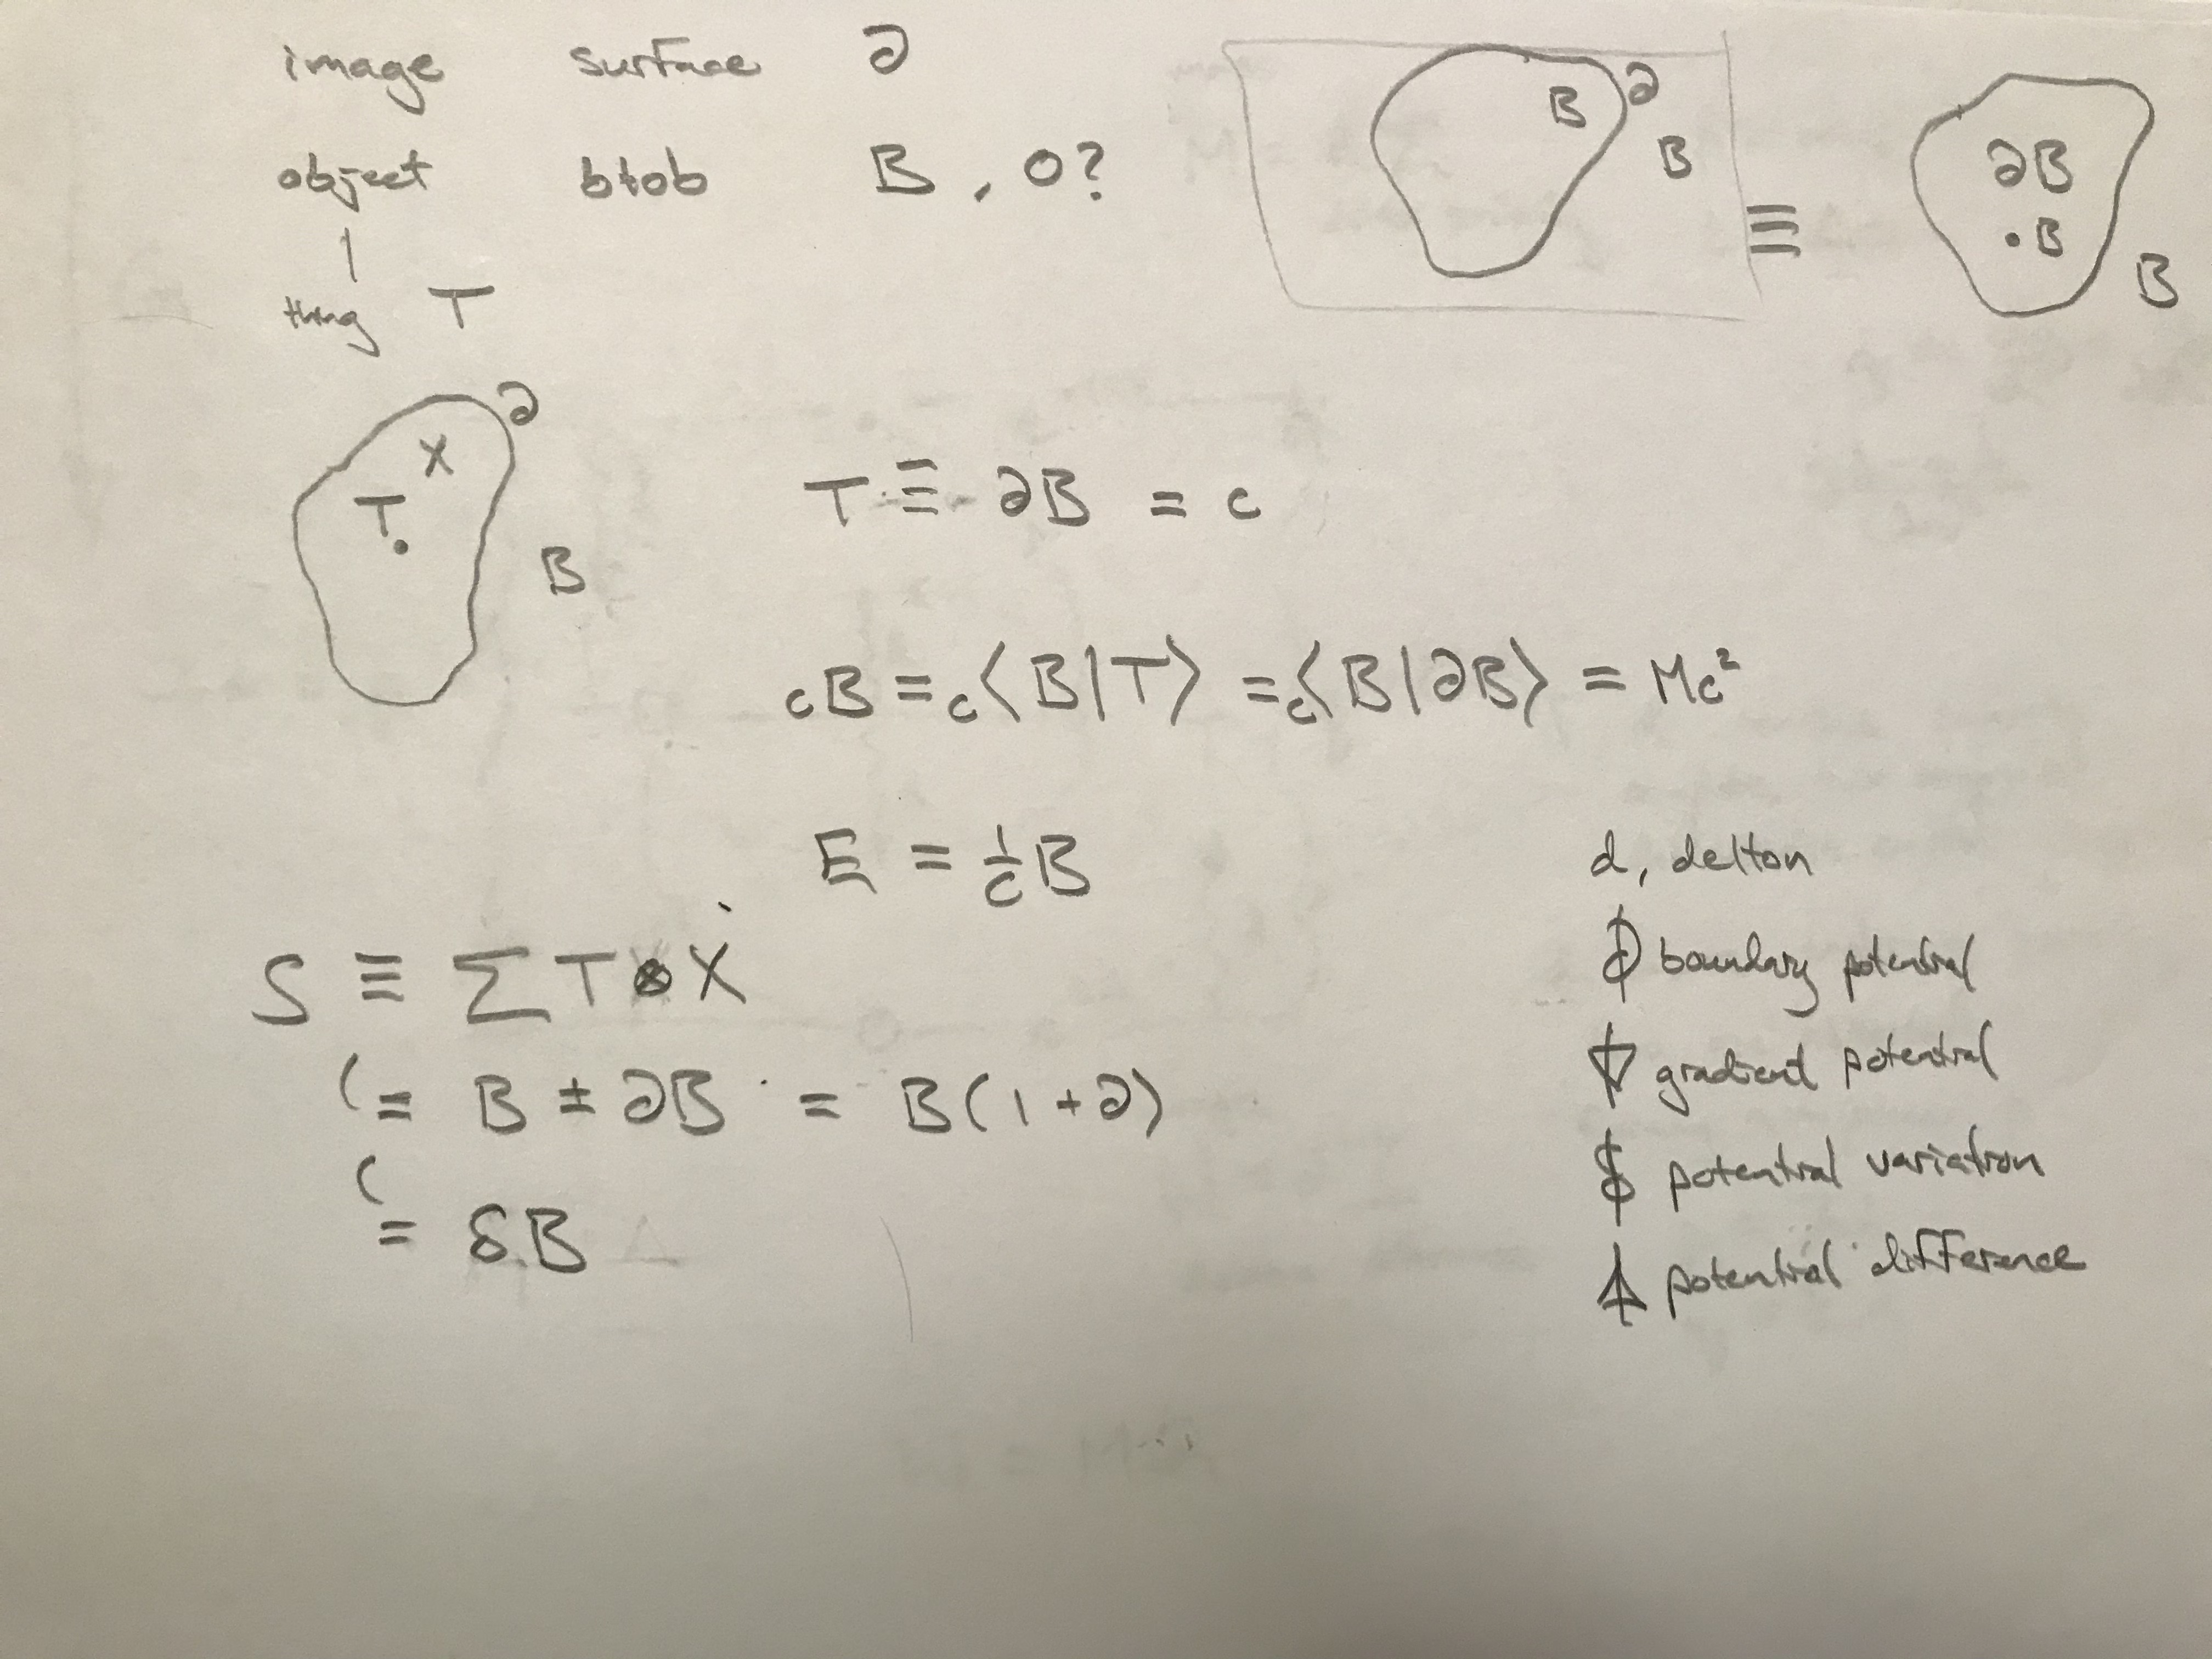 image surface ∂
object blob B, O?
thing T
B ∂ B ≡ ∂B
·B B
∂
X
T
B
T ≡ ∂B = c
cB = c⟨B|T⟩ = c⟨B|∂B⟩ = Mc²
E = 1/c B
S ≡ Σ T ⊗ X
(= B ± ∂B = B(1+∂)
(= δB
d, delton
boundary potential
gradient potential
potential variation
potential difference